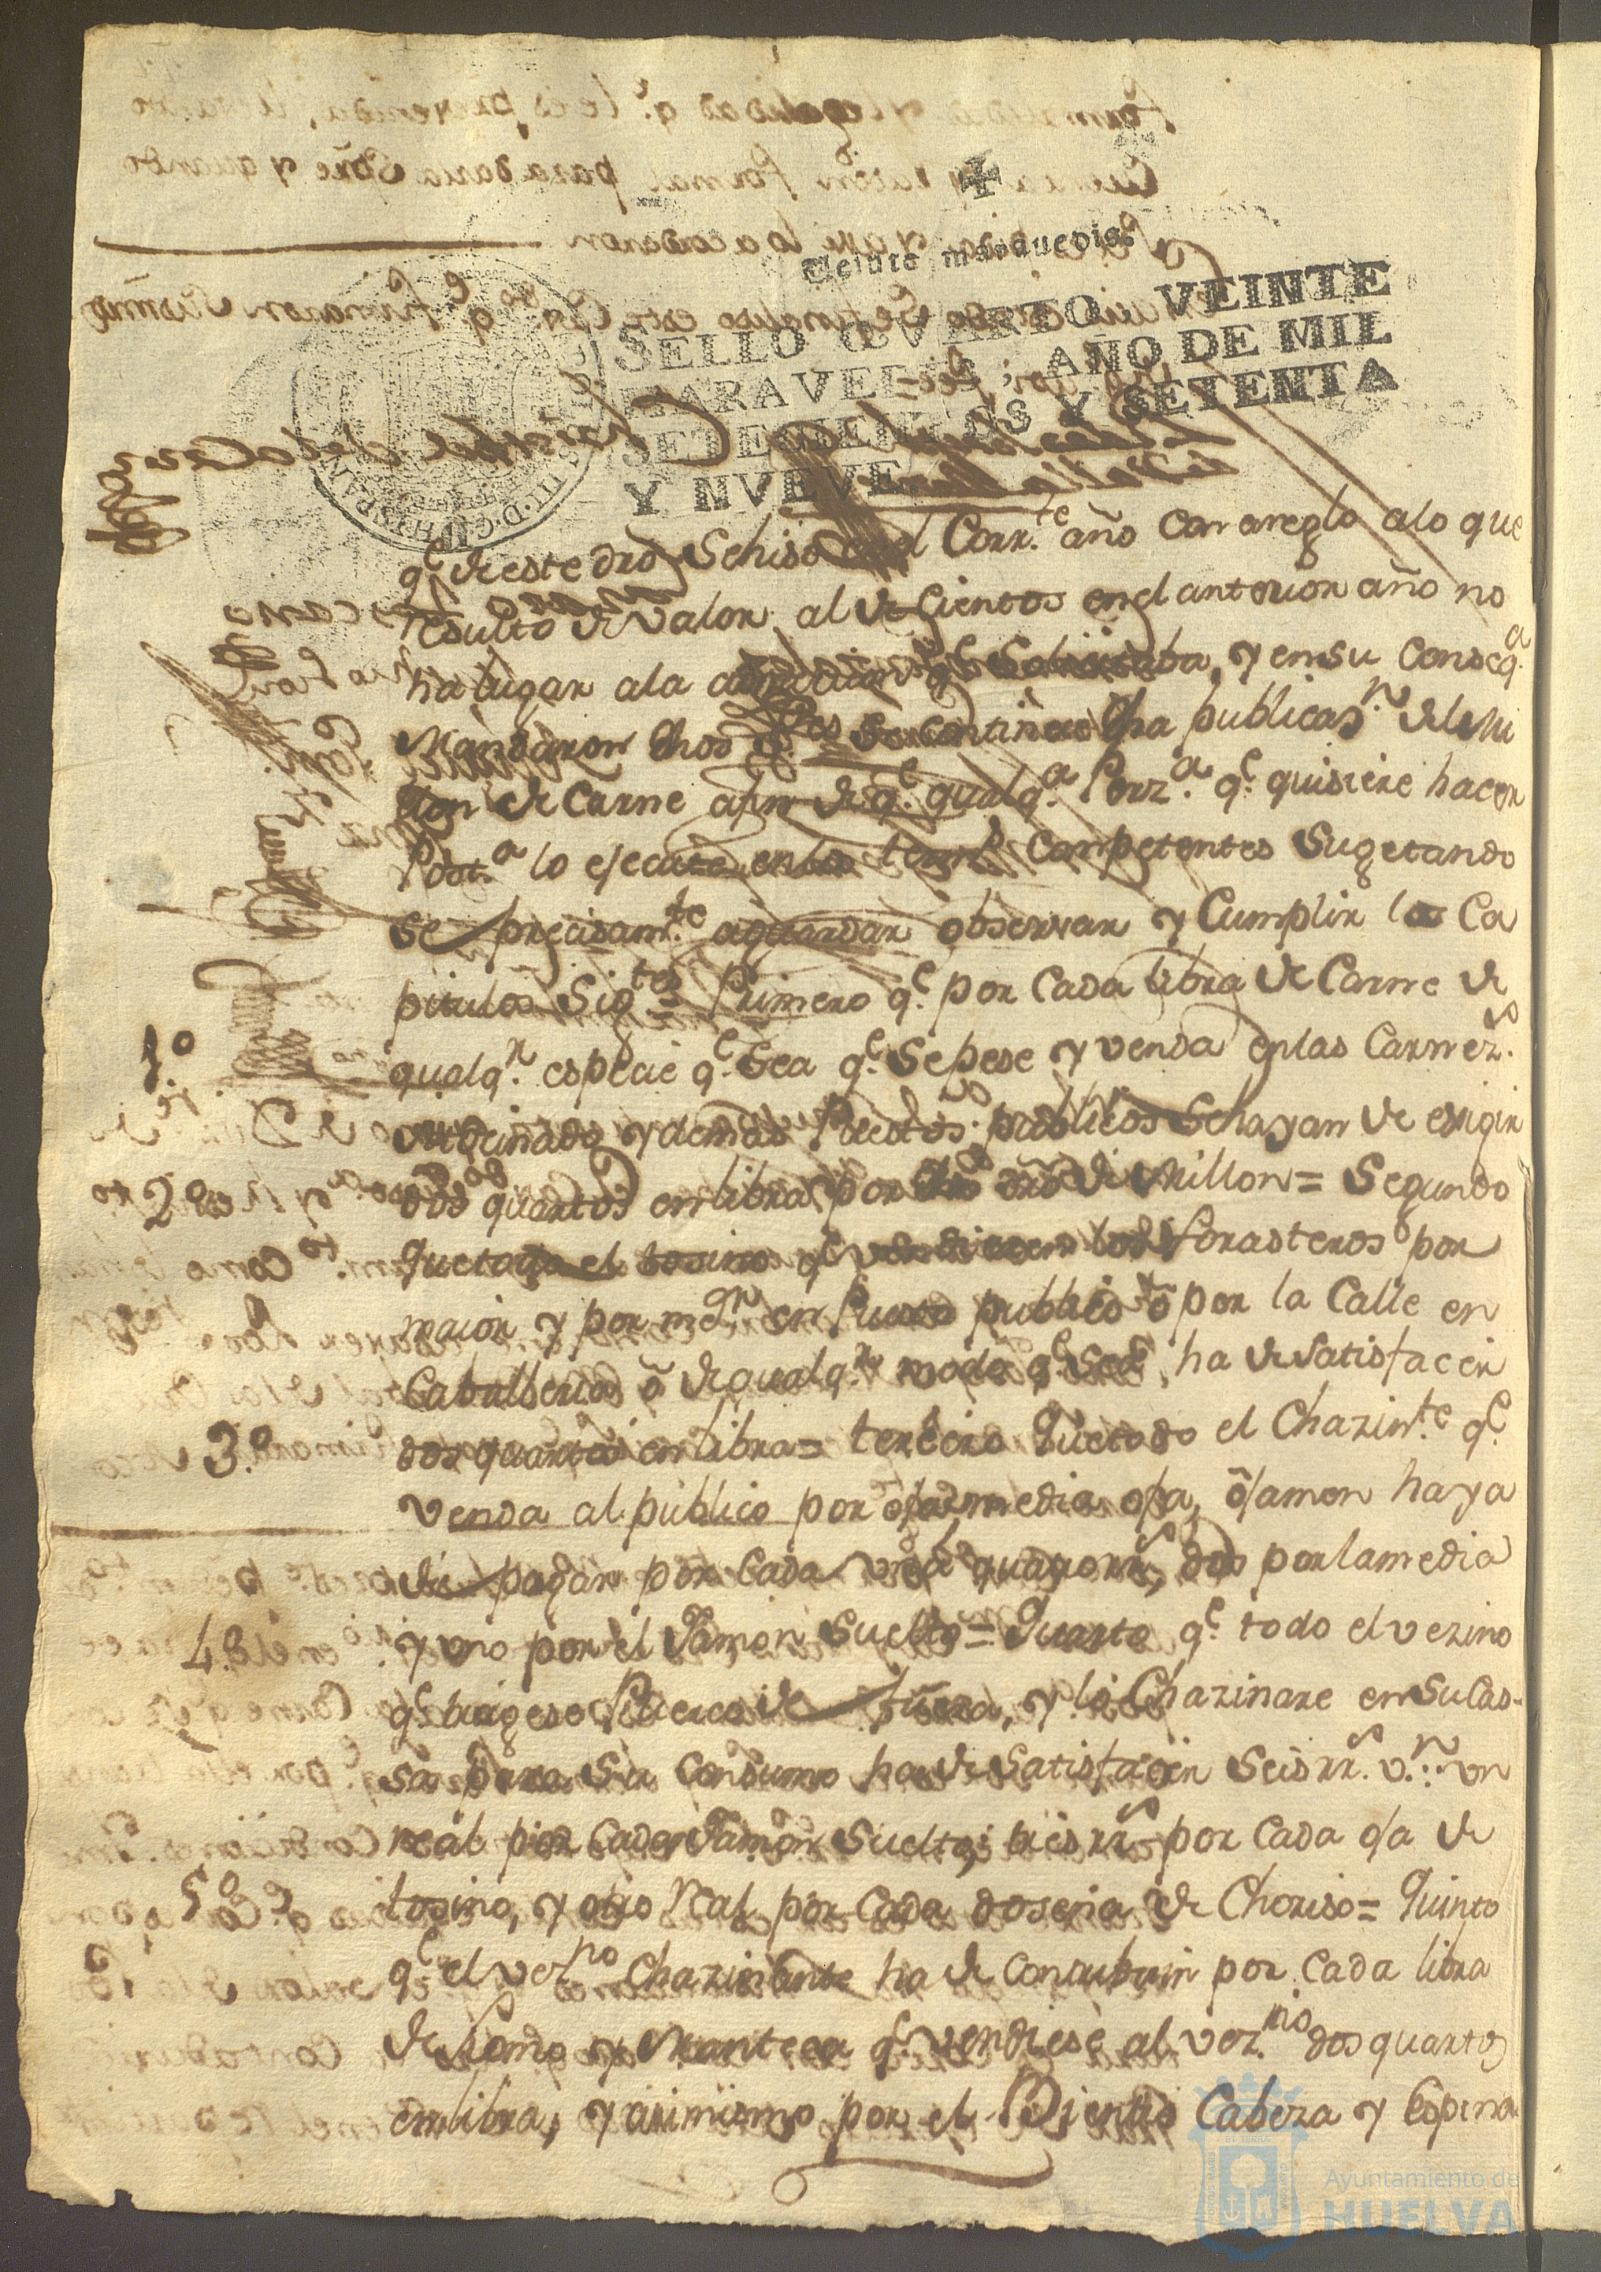 Veinte maravedis.
SELLO QVARTO, VEINTE
MARAVEDIS, AÑO DE MIL
SETECIENTOS Y SETENTA
Y NVEVE.
q.e de este dro Se hiso en el Corr.te año con areglo alo que
resulto de valor al de Cientos en el anterior año no
ha lugar ala q.e Solicitaba, y en su Conseq.a
Mandaron dhos S.res Se continue la publicas.n del Mi
llon de Carne afin de q.e qualq.a Perz.a q.e quisiere hacer
Post.a lo ejecute en los term.s Competentes Sugetando
se precisam.te aguardar observar y Cumplir los Ca
pitulos Sig.tes = Primero q.e por Cada libra de Carne de
1º
qualq.r especie q.e Sea q.e Se pese y venda enlas Carnez.s
tocinada y demas Puestos publicos Se hayan de exigir
2º
dos quartos en libra por dro de Millon = Segundo
que todo el tosino q.e vendiesen los forasteros por
maior y por men.r en Puesto publico õ por la Calle en
Caballerias õ de qualq.r modo q.e Sea, ha de Satisfacer
3.º
dos quartos en libra = tercero Que todo el Chazin.te q.e
venda al publico por oja, media oja, õ jamon haya
de pagar por Cada una quatro rr.s, dos por la media
4.º
y uno por el Jamon Suelto = Quarto q.e todo el vezino
q.e trageso Puerco de fuera, y lo Chazinare en su Cas-
sa para Su Consumo ha de Satisfacer Seis rr.s v.n un
real por Cada Jamon Suelto; tres rr.s por Cada oja de
5º
tosino, y otro Real por Cada dosena de Choriso = Quinto
q.e el vez.no Chazinante ha de Contribuir por Cada libra
de Lomo y Manteca q.e vendiese al vez.no dos quartos
en libra, y asimismo por el Cabeza y Espina
Ayuntamiento de
HUELVA